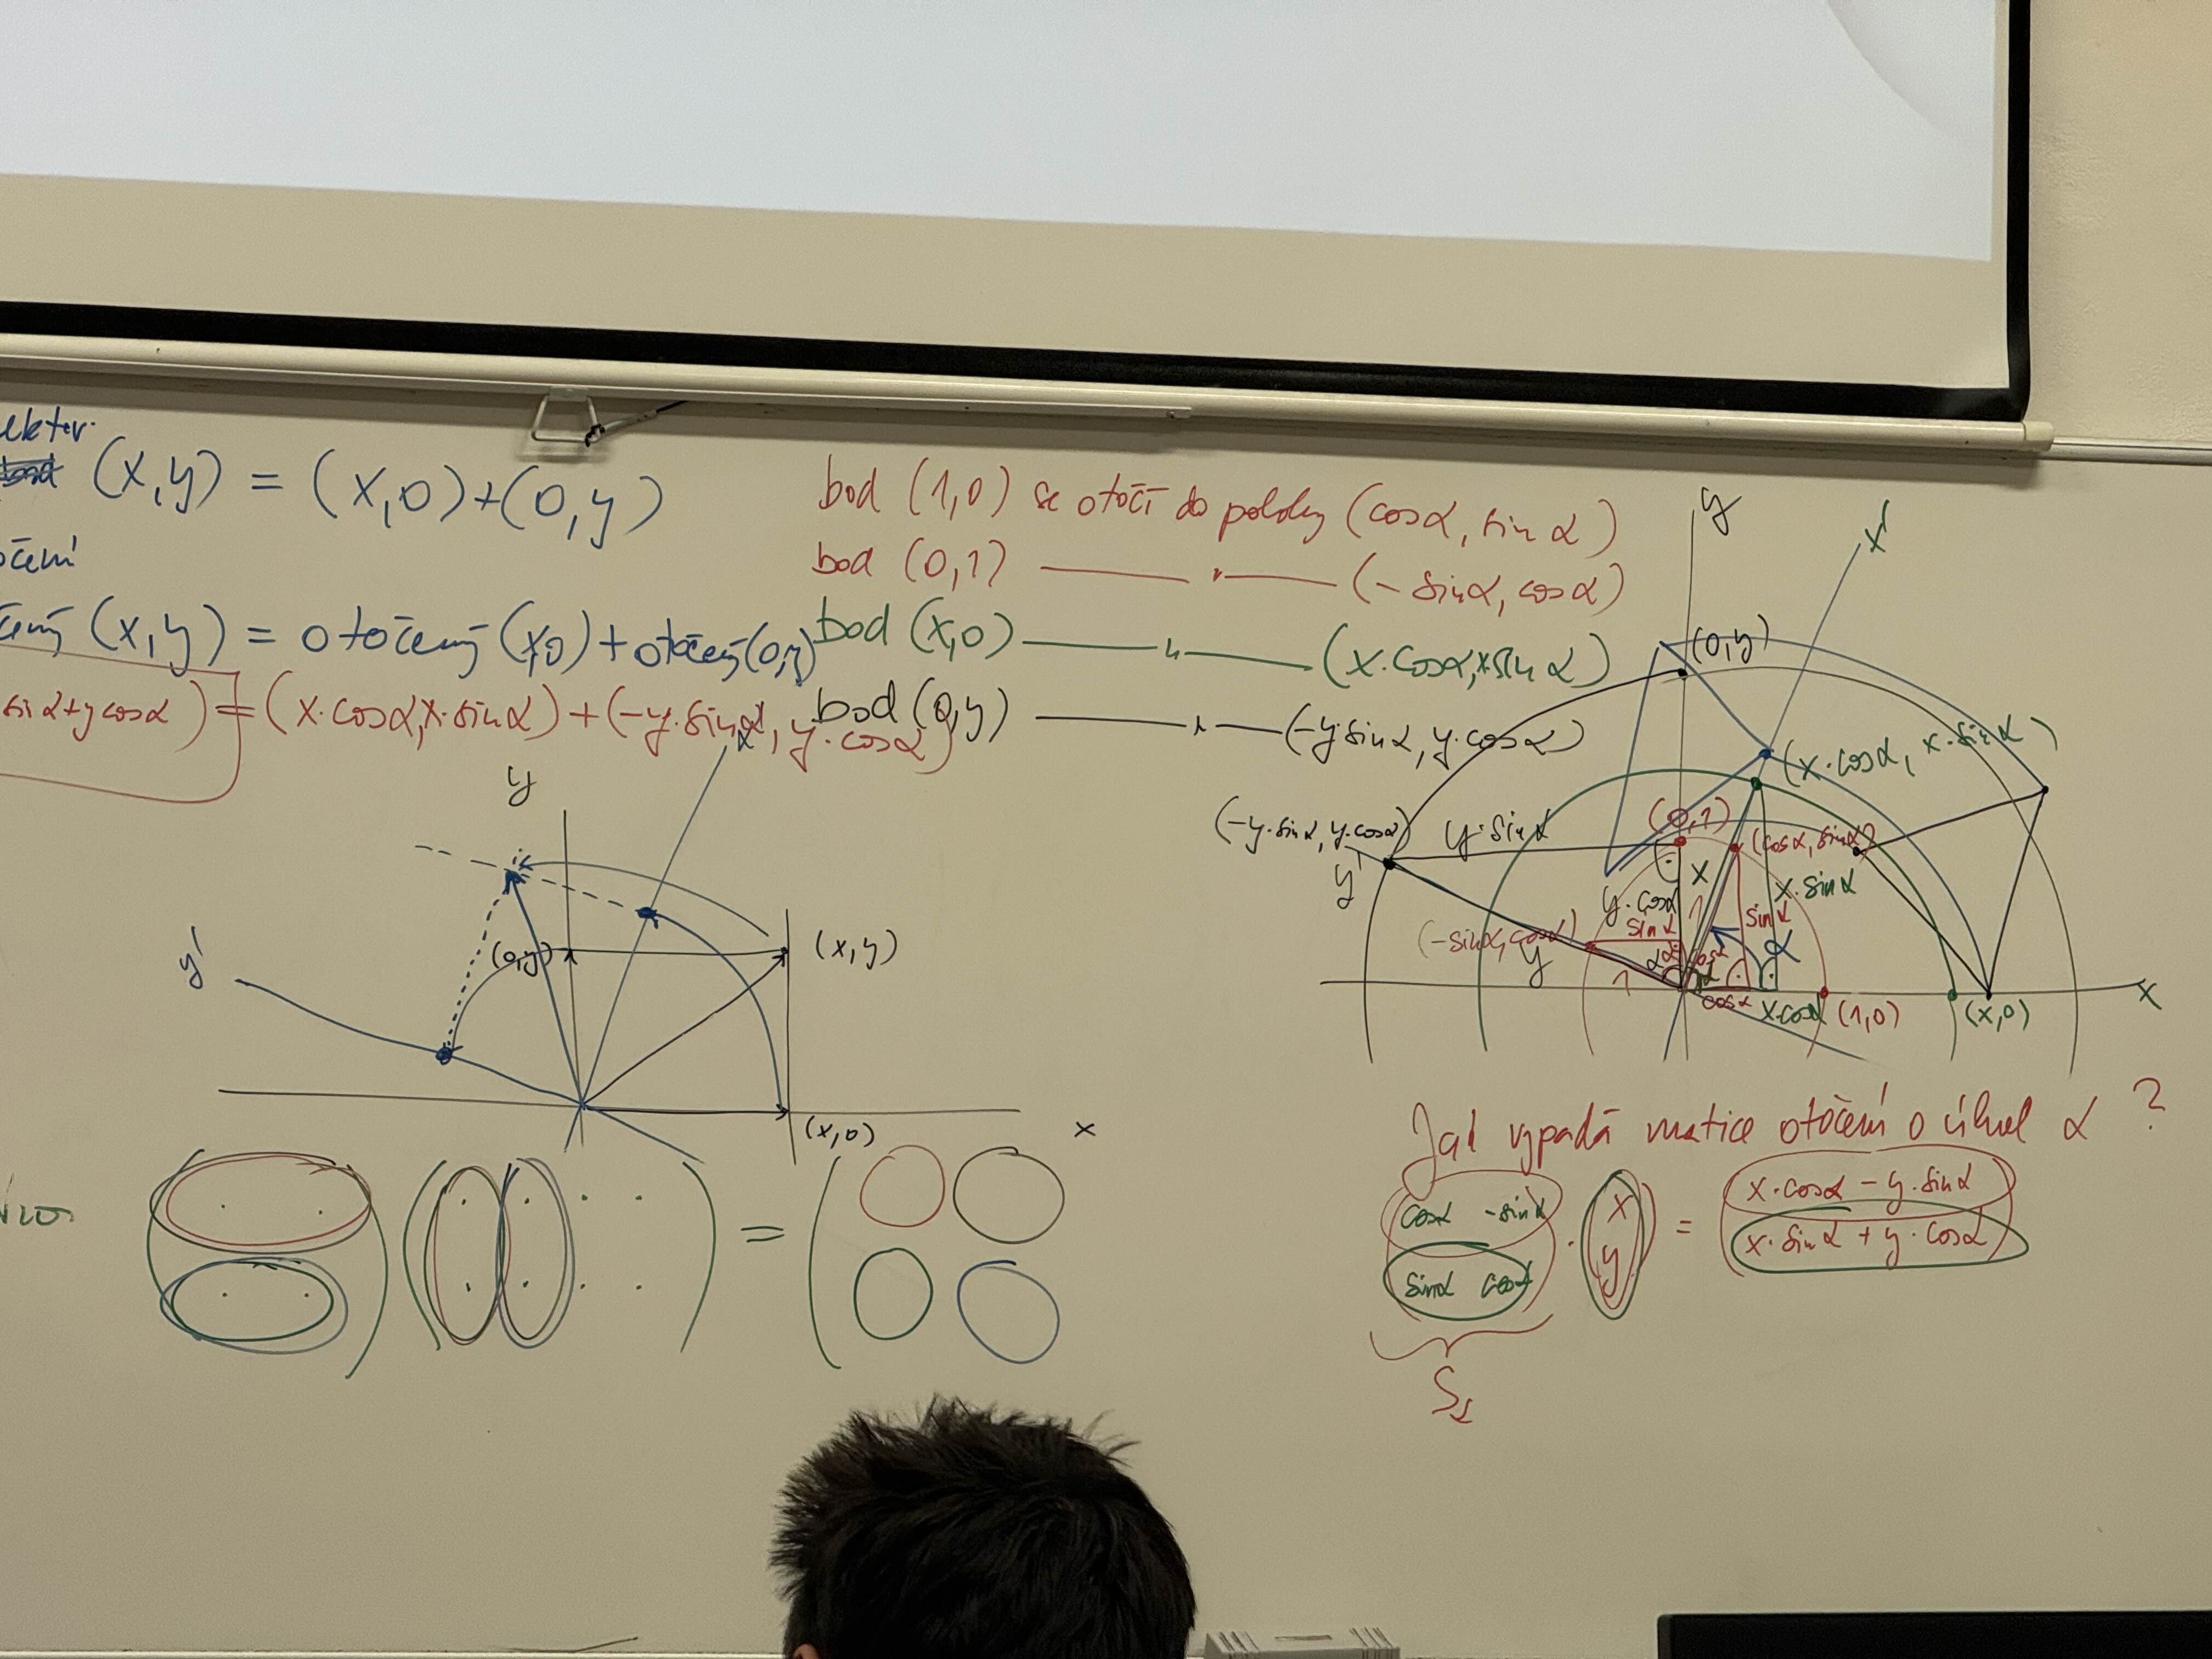 (x,y) = (x,0)+(0,y)
(x,y) = otočený (x,0) + otočený (0,y)
sin α + y cos α) = (x·cos α, x·sin α) + (-y·sin α, y·cos α)
bod (1,0) se otočí do polohy (cos α, sin α)
bod (0,1) —— " —— (-sin α, cos α)
bod (x,0) —— " —— (x·cos α, x sin α)
bod (0,y) —— " —— (-y sin α, y·cos α)
y
x'
y'
(0,y)
(x,y)
(x,0)
x
y
x'
(0,y)
(x·cos α, x·sin α)
(0,1)
(cos α, sin α)
(-y·sin α, y·cos α)
y·sin α
y'
x
x·sin α
y·cos α
sin α
sin α
(-sin α, cos α)
y
α
α
1
1
cos α
x·cos α
(1,0)
(x,0)
x
Jak vypadá matice otočení o úhel α ?
cos α -sin α
sin α cos α
·
x
y
=
x·cos α - y·sin α
x·sin α + y·cos α
=